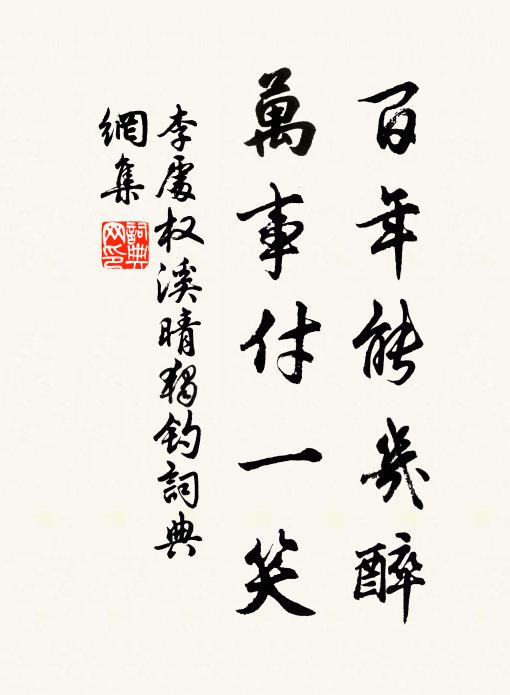 百年能幾醉
萬事付一笑
李處权溪晴獨釣詞典
網集
詞典网印